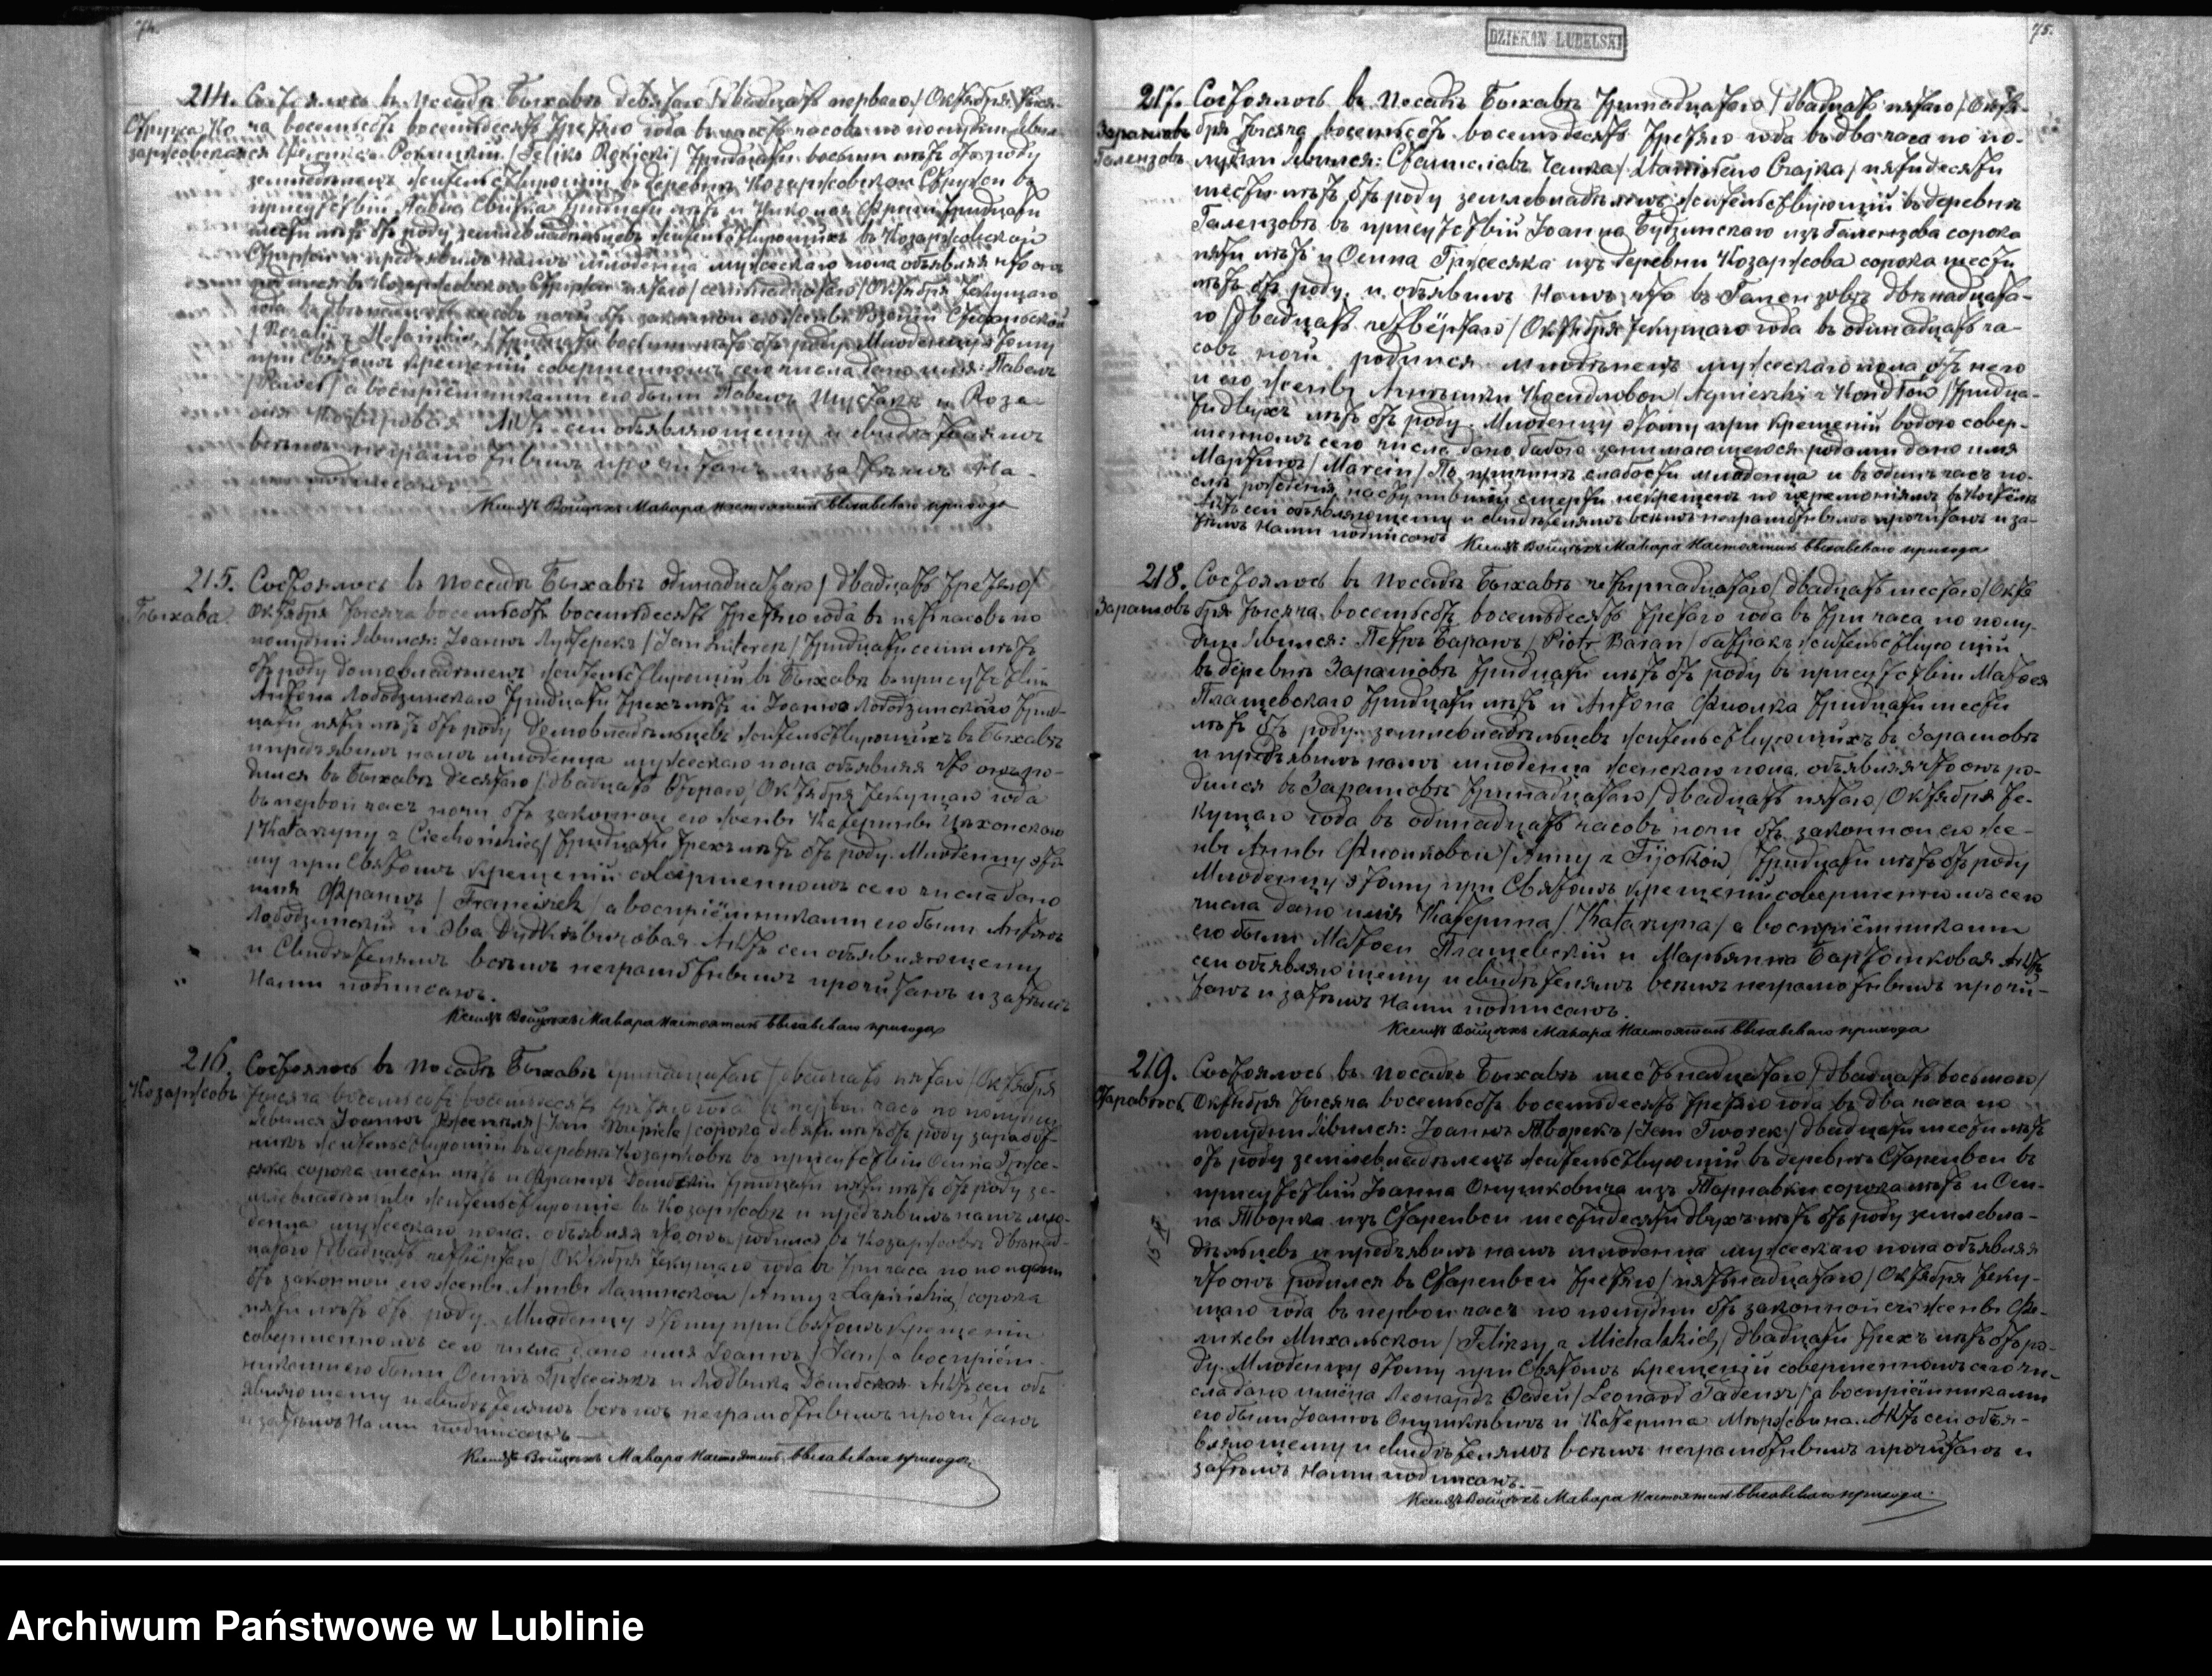 74.
214. Состоялось в посаде Быхаве девятого /двадцать первого/ Октября тыся-
Стружа Ко-
заржовская
ча восемьсот восемьдесят третьего года в часов по полудни
Феликс Рокицкий /Feliks Rokicki/ тридцати восьми лет от роду
жительствующий в деревне Козаржовская Стружа в
присутствии Павла тридцати лет и Николая тридцати
шести лет от роду, землевладельцев жительствующих в Козаржовской
Струже и предъявил нам младенца мужеского пола объявляя что он
родился в Козаржовской Струже пятого /семнадцатого/ Октября текущего
года в часов ночи от законной его жены Розалии
/Rozalii z / тридцати восьми лет от роду. Младенцу этому
при Святом крещении совершенном сего числа дано имя: Павел
/Paweł/ а восприемниками его были Павел Шустак и Роза-
лия Акт сей объявляющему и свидетелям
всем неграмотным прочитан и затем На-
ми подписан
Ксендз Войцех Макара Настоятель Быхавского прихода
215. Состоялось в посаде Быхаве одиннадцатого /двадцать третьего/
Быхава
Октября тысяча восемьсот восемьдесят третьего года в пять часов по
полудни Явился: Иоанн Лутерек /Jan Luterek/ тридцати семи лет
от роду домовладелец жительствующий в Быхаве в присутствии
Антона Лободзинского тридцати трех лет и Иоанна Лободзинского трид-
цати пяти лет от роду домовладельцев жительствующих в Быхаве
и предъявил нам младенца мужеского пола объявляя что он ро-
дился в Быхаве десятого /двадцать второго/ Октября текущего года
в первой час ночи от законной его жены Катерины Цехонской
/Katarzyny z Ciechońskich/ тридцати трех лет от роду. Младенцу это-
му при Святом крещении совершенном сего числа дано
имя Франц /Franciszek/ а восприемниками его были Антон
Лободзинский и Эва Дудкевичовая. Акт сей объявляющему
и Свидетелям всем неграмотным прочитан и затем
Нами подписан.
Ксендз Войцех Макара Настоятель Быхавского прихода
216. Состоялось в посаде Быхаве тринадцатого /двадцать пятого/ Октября
Козаржов
тысяча восемьсот восемьдесят третьего года в первой час по полудни
Явился Иоанн Ржепеля /Jan Rzepiela/ сорока девяти лет от роду заработ-
ник жительствующий в деревне Козаржове в присутствии Осипа Гржесе-
сяка сорока шести лет и Франц Дембский тридцати пяти лет от роду зе-
млевладельцы жительствующие в Козаржове и предъявил нам мла-
денца мужеского пола, объявляя что он родился в Козаржове двенад-
цатого /двадцать четвёртого/ Октября текущего года в три часа по полудни
от законной его жены Анны Лапинской /Anny z Łapińskich/ сорока
пяти лет от роду. Младенцу этому при Святом крещении
совершенном сего числа дано имя Иоанн /Jan/ а восприём-
никами его были Осип Гржесяк и Людвика Дембская. Акт сей объ-
являющему и свидетелям всем неграмотным прочитан
и затем Нами подписан.
Ксендз Войцех Макара Настоятель Быхавского прихода.
DZIEKAN LUBELSKI
75.
217. Состоялось в посаде Быхаве тринадцатого /двадцать пятого/ Октя-
Зарашов
Галензов
бря тысяча восемьсот восемьдесят третьего года в два часа по по-
лудни Явился: Станислав Чайка /Stanisław Czajka/ пятидесяти
шести лет от роду землевладелец жительствующий в деревне
Галензове в присутствии Иоанна Будзинского из Галензова сорока
пяти лет и Осипа Гржесяка из деревни Козаржова сорока шести
лет от роду, и объявил Нам что в Галензове двенадцато-
го /двадцать четвёртого/ Октября текущего года в одинадцать ча-
сов ночи родился младенец мужеского пола от него
и его жены Агнешки Кондловой /Agnieszki z Kondłów/ тридца-
ти двух лет от роду. Младенцу этому при крещении водою совер-
шенном сего числа бабою занимающеюся родами дано имя
Мартин /Marcin/ По причине слабости младенца и в один час по-
сле рождения наступившей смерти некрещен по церемониям в Костёле
Акт сей объявляющему и свидетелям всем неграмотным прочитан и за-
тем Нами подписан
Ксендз Войцех Макара Настоятель Быхавского прихода
218. Состоялось в посаде Быхаве четырнадцатого /двадцать шестого/ Октя-
Зарашов
бря тысяча восемьсот восемьдесят третьего года в три часа по полу-
дни Явился: Петр Баран /Piotr Baran/ батрак жительствующий
в деревне Зарашове тридцати лет от роду в присутствии Матфея
Плашевского тридцати лет и Антона Фиолка тридцати шести
лет от роду землевладельцев жительствующих в Зарашове
и предъявил нам младенца женского пола, объявляя что он ро-
дился в Зарашове тринадцатого /двадцать пятого/ Октября те-
кущего года в одинадцать часов ночи от законной его же-
ны Анны Фиолковой /Anny z Fijołków/ тридцати лет от роду
Младенцу этому при Святом крещении совершенном сего
числа дано имя Катерина /Katarzyna/ а восприёмниками
его были Матфей Плашевский и Марьянна Бартошковая Акт
сей объявляющему и свидетелям всем неграмотным прочи-
тан и затем Нами подписан.
Ксендз Войцех Макара Настоятель Быхавского прихода
219. Состоялось в посаде Быхаве шестьнадцатого /двадцать восьмого/
Старавесь
Октября тысяча восемьсот восемьдесят третьего года в два часа по
полудни Явился: Иоанн Творек /Jan Tworek/ двадцати шести лет
от роду землевладелец жительствующий в деревне Старейвси в
присутствии Иоанна Онушковича из Тарнавки сорока лет и Оси-
па Творка из Старейвси шестидесяти двух лет от роду землевла-
дельцев и предъявил нам младенца мужеского пола объявляя
что он родился в Старейвси третьего /пятьнадцатого/ Октября теку-
щего года в первой час по полудни от законной его жены Фе-
ликсы Михальской /Feliksy z Michalskich/ двадцати трех лет от ро-
ду. Младенцу этому при Святом крещении совершенном сего чи-
сла даны имена Леонард Фадей /Leonard Tadeusz/ а восприёмниками
его были Иоанн Онушкевич и Катерина. Акт сей объя-
вляющему и свидетелям всем неграмотным прочитан и
затем Нами подписан.
Ксендз Войцех Макара Настоятель Быхавского прихода.
Archiwum Państwowe w Lublinie